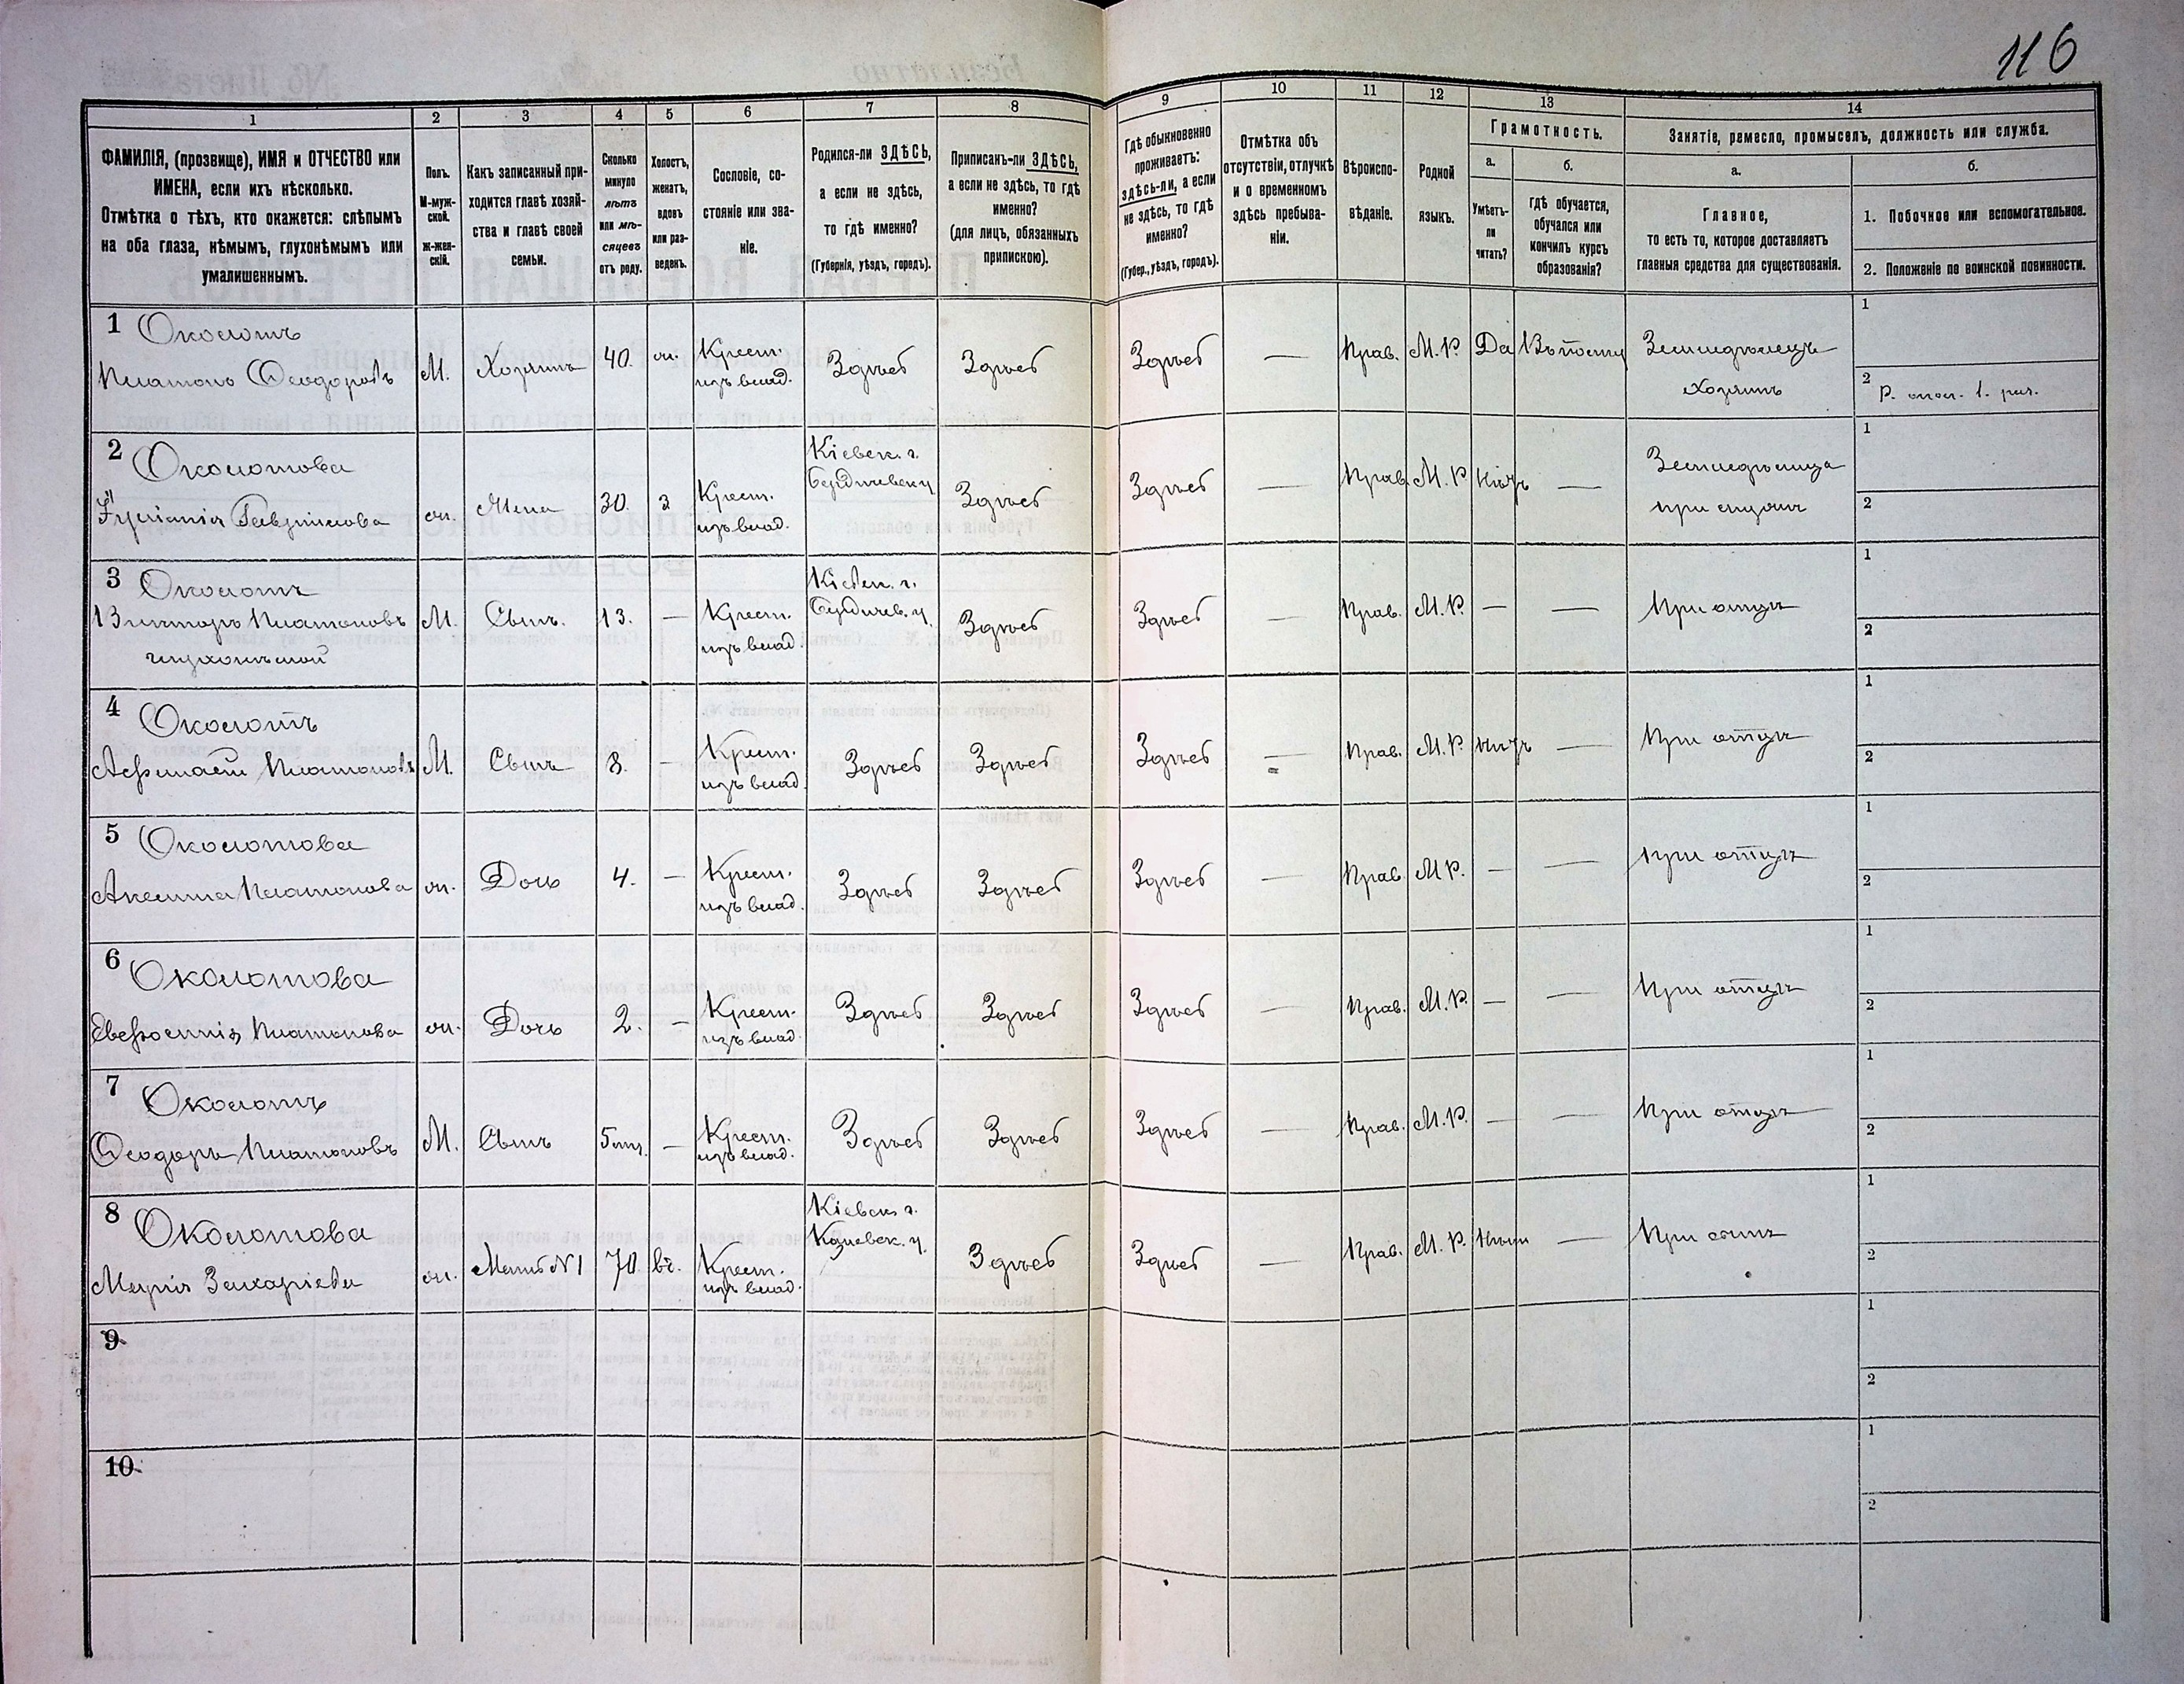 116
1
2
3
4
5
6
7
8
9
10
11
12
13
14
ФАМИЛІЯ, (прозвище), ИМЯ и ОТЧЕСТВО или
ИМЕНА, если ихъ нѣсколько.
Отмѣтка о тѣхъ, кто окажется: слѣпымъ
на оба глаза, нѣмымъ, глухонѣмымъ или
умалишеннымъ.
Полъ.
М-муж-
ской.
ж-жен-
скій.
Какъ записанный при-
ходится главѣ хозяй-
ства и главѣ своей
семьи.
Сколько
минуло
лѣтъ
или мѣ-
сяцевъ
отъ роду.
Холостъ,
женатъ,
вдовъ
или раз-
веденъ.
Сословіе, со-
стояніе или зва-
ніе.
Родился-ли ЗДѢСЬ,
а если не здѣсь,
то гдѣ именно?
(Губернія, уѣздъ, городъ).
Приписанъ-ли ЗДѢСЬ,
а если не здѣсь, то гдѣ
именно?
(для лицъ, обязанныхъ
припискою).
Гдѣ обыкновенно
проживаетъ:
здѣсь-ли, а если
не здѣсь, то гдѣ
именно?
(Губер., уѣздъ, городъ).
Отмѣтка объ
отсутствіи, отлучкѣ
и о временномъ
здѣсь пребыва-
ніи.
Вѣроиспо-
вѣданіе.
Родной
языкъ.
Грамотность.
а.
Умѣетъ-
ли
читать?
б.
гдѣ обучается,
обучался или
кончилъ курсъ
образованія?
Занятіе, ремесло, промыселъ, должность или служба.
а.
Главное,
то есть то, которое доставляетъ
главныя средства для существованія.
б.
1. Побочное или вспомогательное.
2. Положеніе по воинской повинности.
1 Околотъ
Платонъ Ѳеодоровъ
М.
Хозяинъ
40.
ж.
Крест.
изъ влад.
Здѣсь
Здѣсь
Здѣсь
—
Прав.
М. Р.
Да
Земледѣлецъ
хозяинъ
1
2
2 Околотова
Гавриілова
ж.
Жена
30.
з
Крест.
изъ влад.
Кіевск. г.
Бердичевск. у.
Здѣсь
Здѣсь
—
Прав.
М. Р.
Нѣтъ
—
Земледѣлица
при мужѣ
1
2
3 Околотъ
Викторъ Платоновъ
глухонѣмой
М.
Сынъ.
13.
—
Крест.
изъ влад.
Кіевск. г.
Бердичев. у.
Здѣсь
Здѣсь
—
Прав.
М. Р.
—
—
При отцѣ
1
2
4 Околотъ
Афанасій Платоновъ
М.
Сынъ
8.
—
Крест.
изъ влад.
Здѣсь
Здѣсь
Здѣсь
—
Прав.
М. Р.
Нѣтъ
—
При отцѣ
1
2
5 Околотова
Аксинія Платонова
ж.
Дочь
4.
—
Крест.
изъ влад.
Здѣсь
Здѣсь
Здѣсь
—
Прав.
М Р.
—
—
при отцѣ
1
2
6 Околотова
Евфросинія Платонова
ж.
Дочь
2.
—
Крест.
изъ влад.
Здѣсь
Здѣсь
Здѣсь
—
Прав.
М. Р.
—
—
При отцѣ
1
2
7 Околотъ
Ѳеодоръ Платоновъ
М.
Сынъ
5 м.
—
Крест.
изъ влад.
Здѣсь
Здѣсь
Здѣсь
—
Прав.
М. Р.
—
—
При отцѣ
1
2
8 Околотова
Марія Захаріева
ж.
Мать № 1
70
вд.
Крест.
изъ влад.
Кіевск. г.
Здѣсь
Здѣсь
—
Прав.
М. Р.
Нѣтъ
—
При сынѣ
1
2
9
1
2
10
1
2